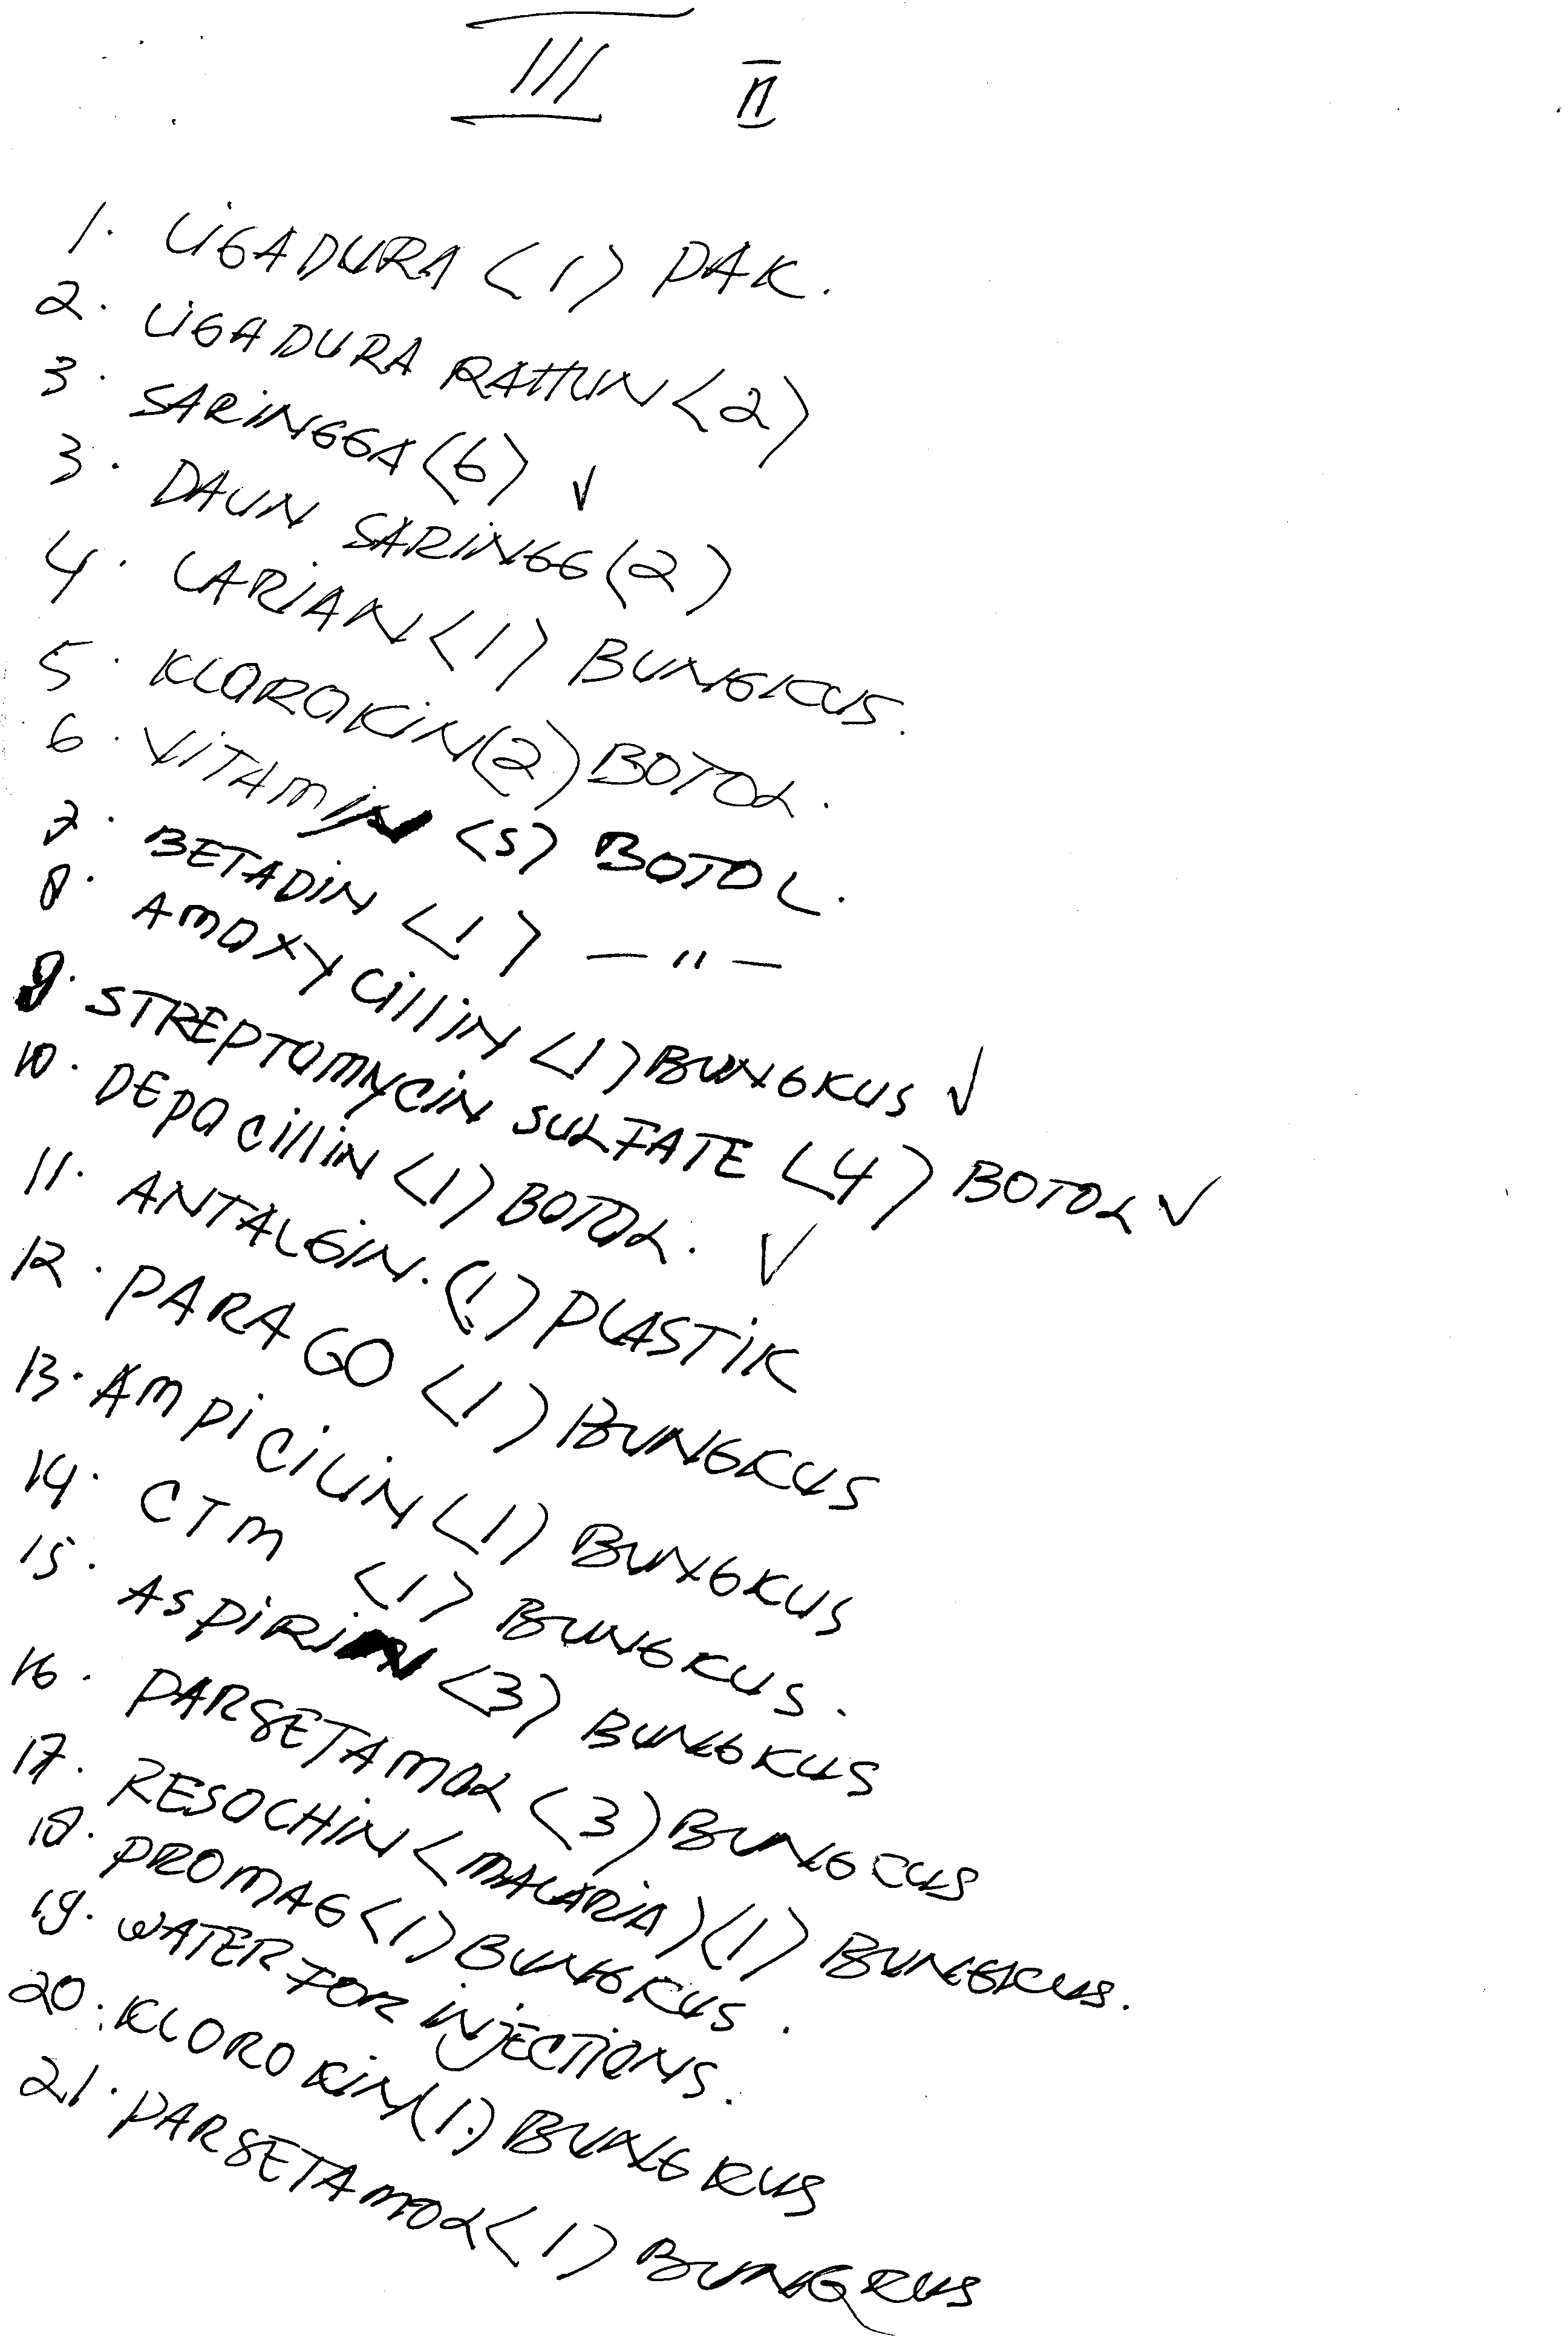 III II
1. LIGADURA (1) PAK.
2. LIGADURA RAHUN (2)
3. SARINGGA (6) ✓
3. DAUN SARINGG (2)
4. LARIAN (1) BUNGKUS.
5. KLOROKIN (2) BOTOL.
6. VITAMIN (5) BOTOL.
7. BETADIN (1) — " —
8. AMOXYCillIN (1) BUNGKUS ✓
9. STREPTOMYCIN SULFATE (4) BOTOL ✓
10. DEPOCillIN (1) BOTOL. ✓
11. ANTALGIN. (1) PLASTIK
12. PARAGO (1) BUNGKUS
13. AMPICILIN (1) BUNGKUS
14. CTM (1) BUNGKUS.
15. ASPIRIN (3) BUNGKUS
16. PARSETAMOL (3) BUNGCUS
17. RESOCHIN (MALARIA) (1) BUNGKUS.
18. PROMAG (1) BUNGKUS.
19. WATER FOR INJECTIONS.
20. KLOROKIN (1.) BUNGKUS
21. PARSETAMOL (1) BUNGKUS